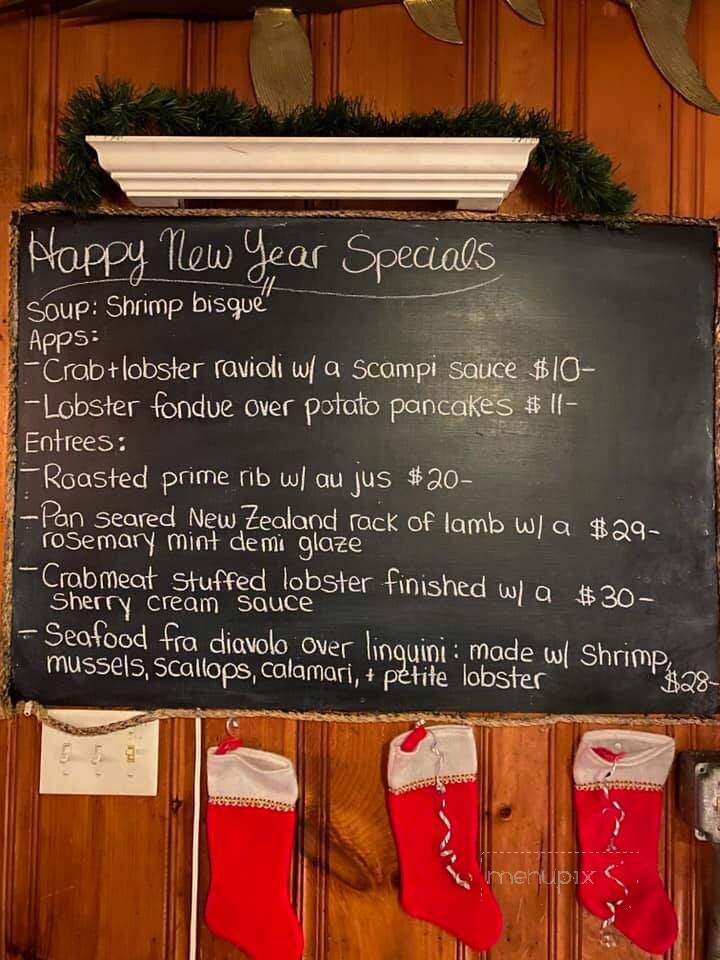 Happy New Year Specials
Soup: Shrimp bisque
Apps:
- Crab + lobster ravioli w/ a scampi sauce $10-
- Lobster fondue over potato pancakes $11-
Entrees:
- Roasted prime rib w/ au jus $20-
- Pan seared New Zealand rack of lamb w/ a $29-
rosemary mint demi glaze
- Crabmeat stuffed lobster finished w/ a $30-
Sherry cream sauce
- Seafood fra diavolo over linguini: made w/ Shrimp,
mussels, scallops, calamari, + petite lobster $28-
menupix